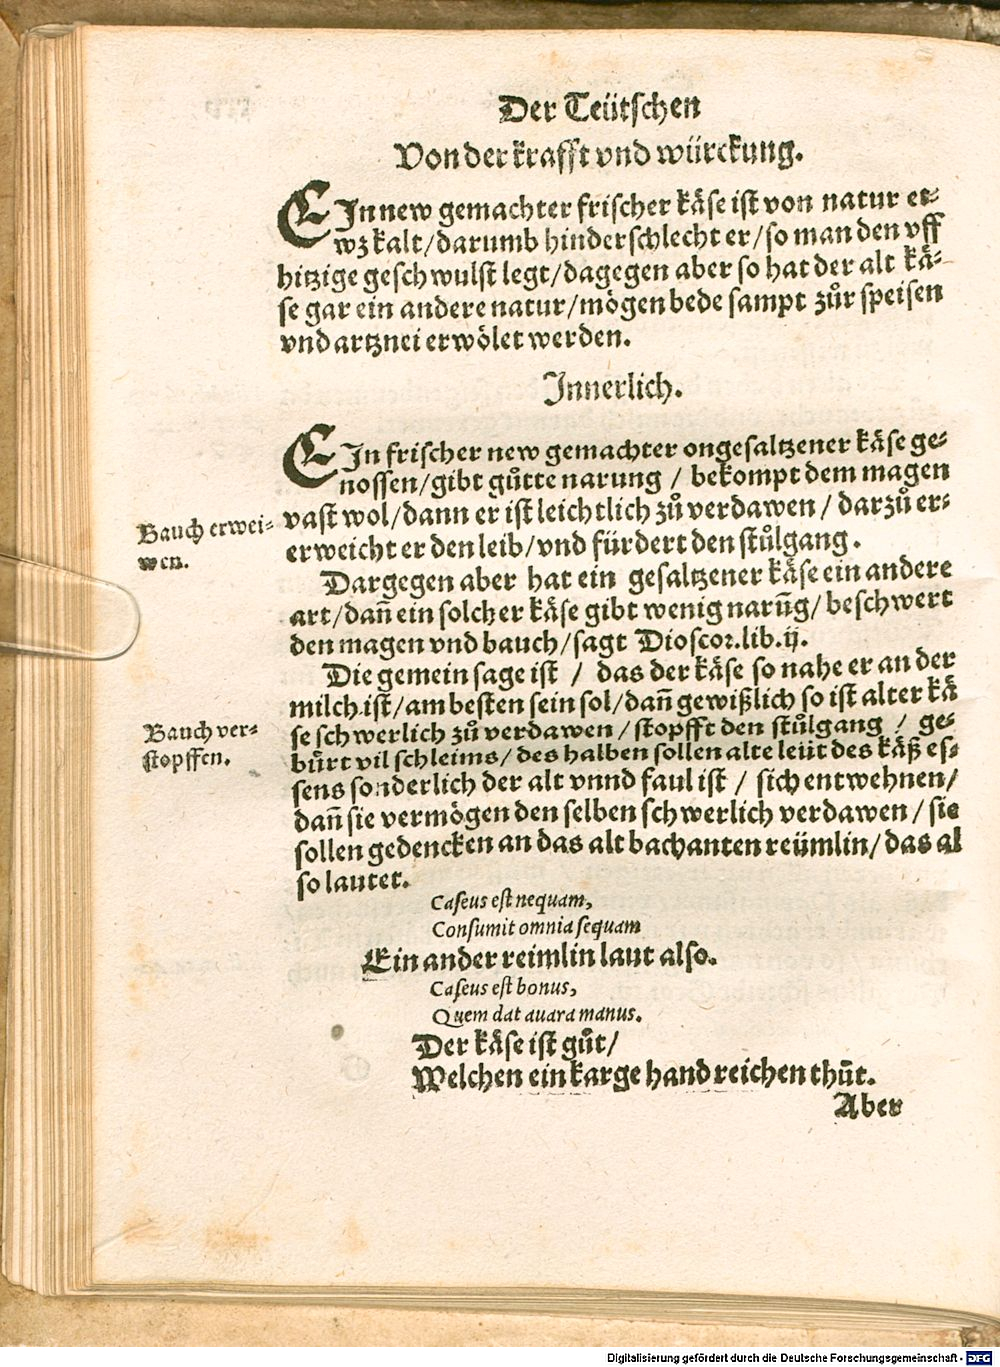 Der Teütschen
Von der krafft vnd würckung.
EIn new gemachter frischer käse ist von natur et-
wz kalt/darumb hinderschlecht er/so man den vff
hitzige geschwulst legt/dagegen aber so hat der alt kä-
se gar ein andere natur/mögen bede sampt zůr speisen
vnd artznei erwölet werden.
Innerlich.
EIn frischer new gemachter ongesaltzener käse ge-
nossen/gibt gůtte narung / bekompt dem magen
Bauch erwei-
wen.
vast wol/dann er ist leichtlich zů verdawen / darzů er-
erweicht er den leib/vnd fürdert den stůlgang.
Dargegen aber hat ein gesaltzener käse ein andere
art/dañ ein solcher käse gibt wenig narūg/ beschwert
den magen vnd bauch/sagt Dioscor.lib.ij.
Die gemein sage ist / das der käse so nahe er an der
milch ist/am besten sein sol/dañ gewißlich so ist alter kä
Bauch ver-
stopffen.
se schwerlich zů verdawen / stopfft den stůlgang / ge-
bürt vil schleims/des halben sollen alte leüt des käß es-
sens sonderlich der alt vnnd faul ist / sich entwehnen/
dañ sie vermögen den selben schwerlich verdawen / sie
sollen gedencken an das alt bachanten reümlin/das al
so lautet.
Caseus est nequam,
Consumit omnia sequam
Ein ander reimlin laut also.
Caseus est bonus,
Quem dat auara manus.
Der käse ist gůt/
Welchen ein karge hand reichen thůt.
Aber
Digitalisierung gefördert durch die Deutsche Forschungsgemeinschaft - DFG